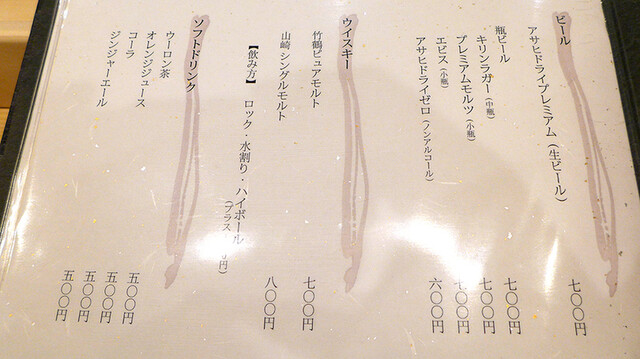 ビール
アサヒドライプレミアム（生ビール） 七〇〇円
瓶ビール
キリンラガー（中瓶） 七〇〇円
プレミアムモルツ（小瓶） 七〇〇円
エビス（小瓶） 七〇〇円
アサヒドライゼロ（ノンアルコール） 六〇〇円
ウイスキー
竹鶴ピュアモルト 七〇〇円
山崎シングルモルト 八〇〇円
【飲み方】 ロック・水割り・ハイボール
（プラス 円）
ソフトドリンク
ウーロン茶 五〇〇円
オレンジジュース 五〇〇円
コーラ 五〇〇円
ジンジャーエール 五〇〇円